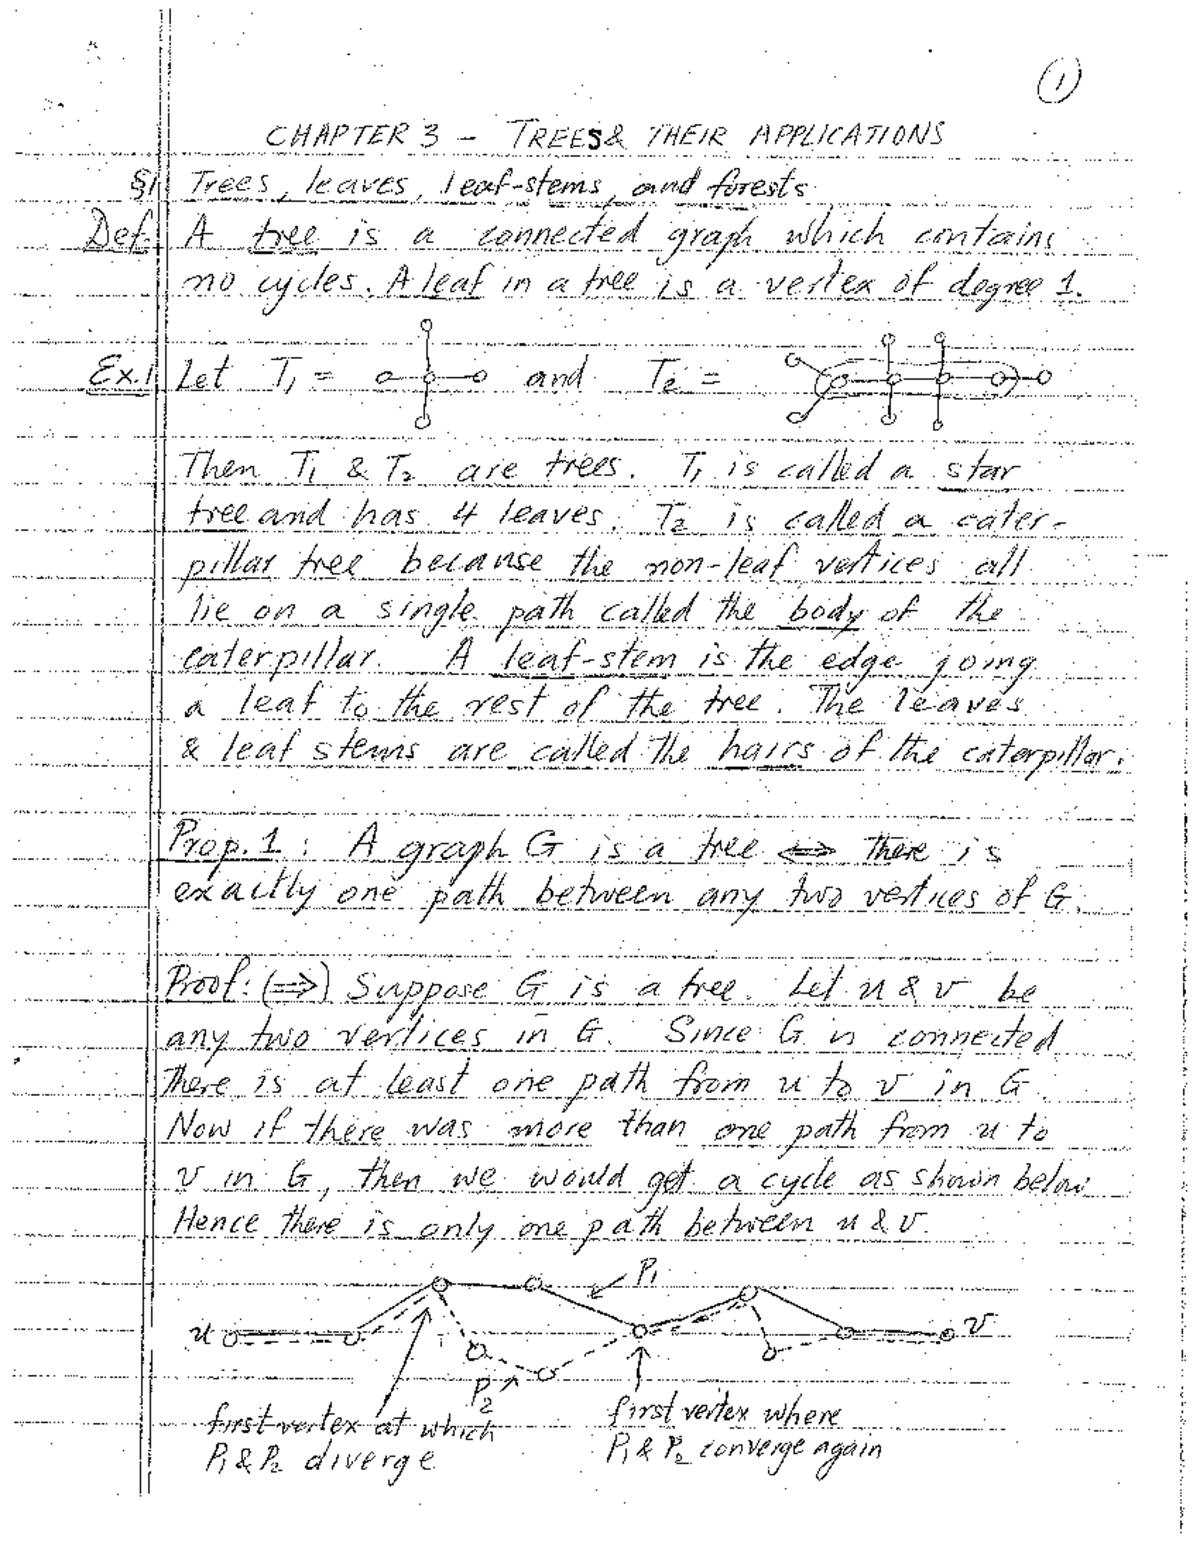 ①
CHAPTER 3 – TREES & THEIR APPLICATIONS
§1 Trees, leaves, leaf-stems, and forests
Def. A tree is a connected graph which contains
no cycles. A leaf in a tree is a vertex of degree 1.
Ex.1 Let T₁ = and T₂ =
Then T₁ & T₂ are trees. T₁ is called a star
tree and has 4 leaves. T₂ is called a cater-
pillar tree because the non-leaf vertices all
lie on a single path called the body of the
caterpillar. A leaf-stem is the edge joing
a leaf to the rest of the tree. The leaves
& leaf stems are called the hairs of the caterpillar.
Prop. 1 : A graph G is a tree ⟺ there is
exactly one path between any two vertices of G.
Proof: (⟹) Suppose G is a tree. Let u & v be
any two vertices in G. Since G is connected
there is at least one path from u to v in G.
Now if there was more than one path from u to
v in G, then we would get a cycle as shown below
Hence there is only one path between u & v.
P₁
u v
P₂
first vertex at which
P₁ & P₂ diverge
first vertex where
P₁ & P₂ converge again